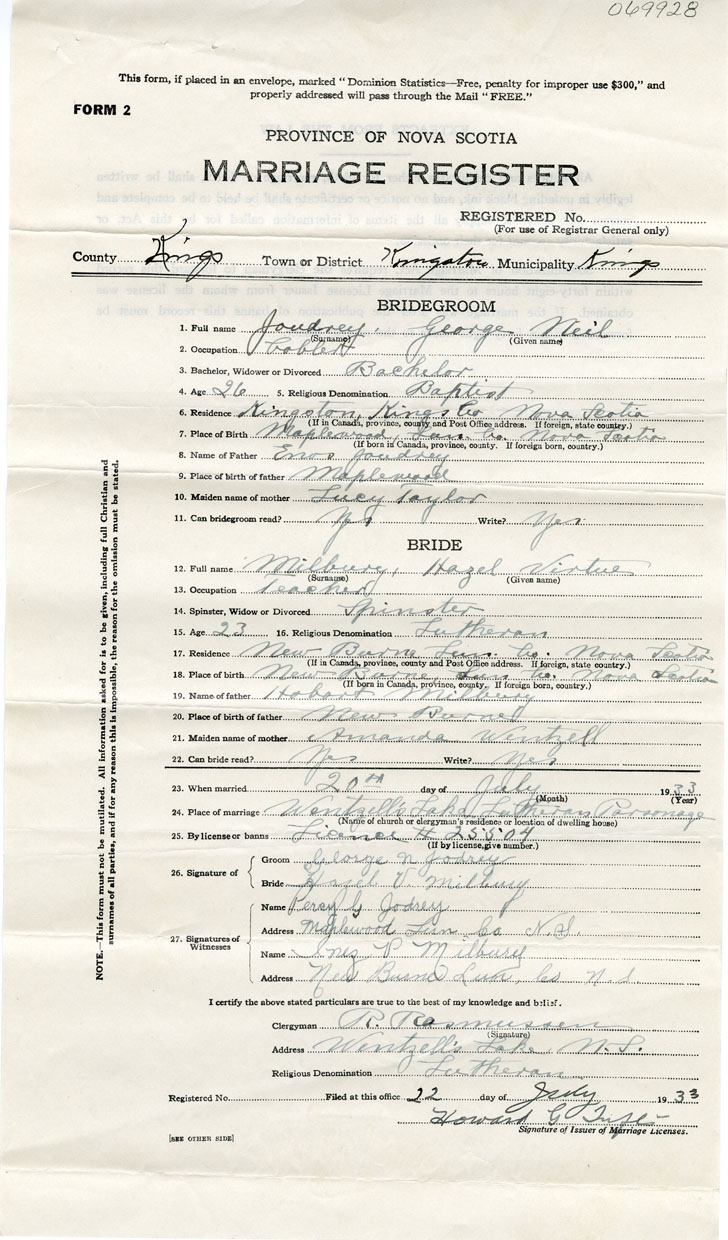 069928
This form, if placed in an envelope, marked "Dominion Statistics—Free, penalty for improper use $300," and
properly addressed will pass through the Mail "FREE."
FORM 2
PROVINCE OF NOVA SCOTIA
MARRIAGE REGISTER
REGISTERED No.
(For use of Registrar General only)
County Kings Town or District Kingston Municipality Kings
BRIDEGROOM
1. Full name Joudrey, George Neil
(Surname) (Given name)
2. Occupation Cobbler
3. Bachelor, Widower or Divorced Bachelor
4. Age 26 5. Religious Denomination Baptist
6. Residence Kingston, Kings Co Nova Scotia
(If in Canada, province, county and Post Office address. If foreign, state country.)
7. Place of Birth Maplewood, Lun. Co. Nova Scotia
(If born in Canada, province, county. If foreign born, country.)
8. Name of Father Enos Joudrey
9. Place of birth of father Maplewood
10. Maiden name of mother Lucy Taylor
11. Can bridegroom read? Yes Write? Yes
BRIDE
12. Full name Milbury, Hazel Virtue
(Surname) (Given name)
13. Occupation Teacher
14. Spinster, Widow or Divorced Spinster
15. Age 23 16. Religious Denomination Lutheran
17. Residence New Burne Lun. Co. Nova Scotia
(If in Canada, province, county and Post Office address. If foreign, state country.)
18. Place of birth New Burne, Lun Co. Nova Scotia
(If born in Canada, province, county. If foreign born, country.)
19. Name of father Hobart Milbury
20. Place of birth of father New Burne
21. Maiden name of mother Amanda Wentzell
22. Can bride read? Yes Write? Yes
23. When married 20th day of July 1933
(Month) (Year)
24. Place of marriage Wentzell's Lake Lutheran Parsonage
(Name of church or clergyman's residence or location of dwelling house)
25. By license or banns Licence # 25504
(If by license, give number.)
26. Signature of
Groom George N Jodrey
Bride Hazel V. Milbury
27. Signatures of Witnesses
Name Percy G Jodrey
Address Maplewood Lun Co N.S.
Name Inez P Milbury
Address New Burne Lun. Co N.S.
I certify the above stated particulars are true to the best of my knowledge and belief.
Clergyman R. Rasmussen
(Signature)
Address Wentzell's Lake, N.S.
Religious Denomination Lutheran
Registered No. Filed at this office 22 day of July 1933
Howard G
Signature of Issuer of Marriage Licenses.
[SEE OTHER SIDE]
NOTE.—This form must not be mutilated. All information asked for is to be given, including full Christian and
surnames of all parties, and if for any reason this is impossible, the reason for the omission must be stated.